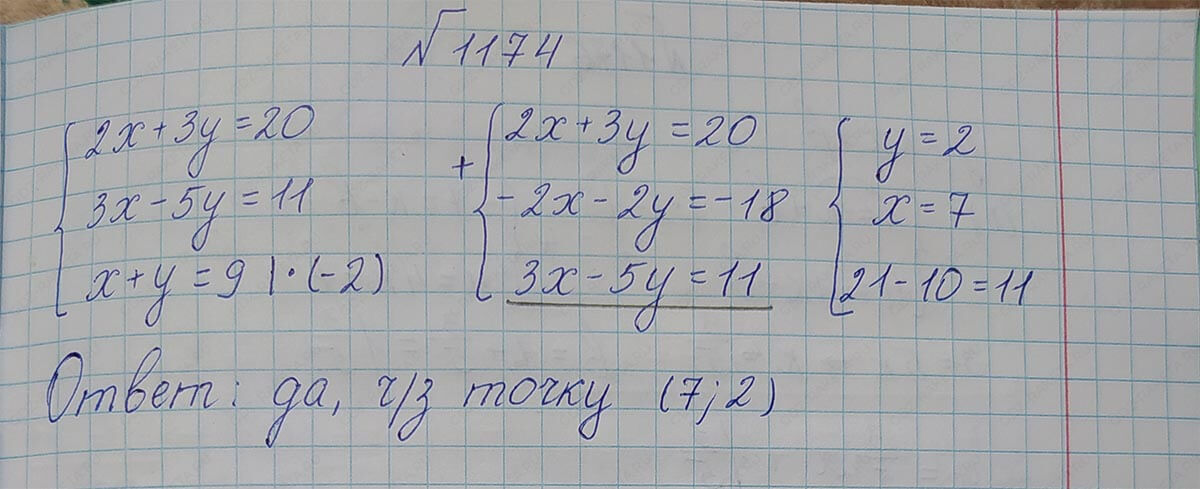 √1174
2x+3y=20
3x-5y=11
x+y=9 |·(-2)
+
2x+3y=20
-2x-2y=-18
3x-5y=11
y=2
x=7
21-10=11
Ответ: да, ч/з точку (7;2)